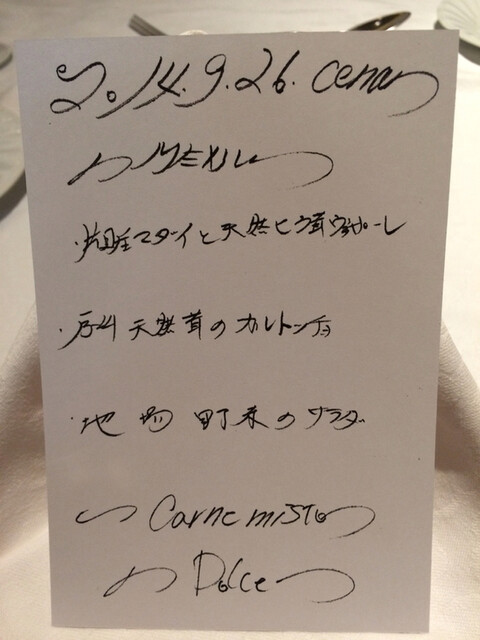 2014.9.26. cena
MENU
マダイと天然ヒラ茸ヴァポーレ
天然茸のカルトッチョ
地場野菜のサラダ
Carne misto
Dolce